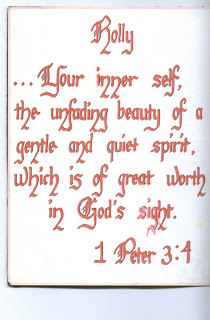 Holly
...Your inner self,
the unfading beauty of a
gentle and quiet spirit,
which is of great worth
in God's sight.
1 Peter 3:4